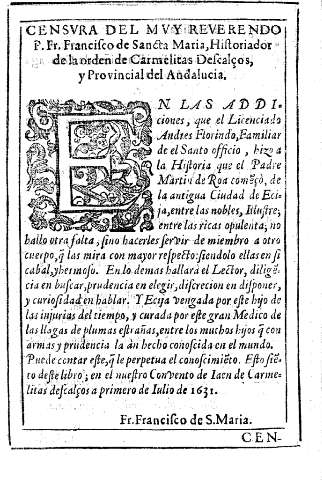 CENSVRA DEL MVY REVERENDO
P. Fr. Francisco de Sancta Maria, Historiador
de la orden de Carmelitas Descalços,
y Provincial del Andalucia.
EN LAS ADDI-
ciones, que el Licenciado
Andres Florindo, Familiar
de el Santo officio, hizo a
la Historia que el Padre
Martin de Roa comẽçò, de
la antigua Ciudad de Eci-
ja, entre las nobles, Ilustre;
entre las ricas opulenta, no
hallo otra falta, sino hacerles servir de miembro a otro
cuerpo, q̃ las mira con mayor respecto: siendolo ellas en si
cabal, y hermoso. En lo demas hallarà el Lector, diligẽ-
cia en buscar, prudencia en elegir, discrecion en disponer,
y curiosidad en hablar. Y Ecija vengada por este hijo de
las injurias del tiempo, y curada por este gran Medico de
las llagas de plumas estrañas, entre los muchos hijos q̃ con
armas y prudencia la àn hecho conoscida en el mundo.
Puede contar este, q̃ le perpetua el conoscimiẽto. Esto siẽ-
to deste libro; en el nuestro Convento de Iaen de Carme-
litas descalços a primero de Iulio de 1631.
Fr. Francisco de S. Maria.
CEN-